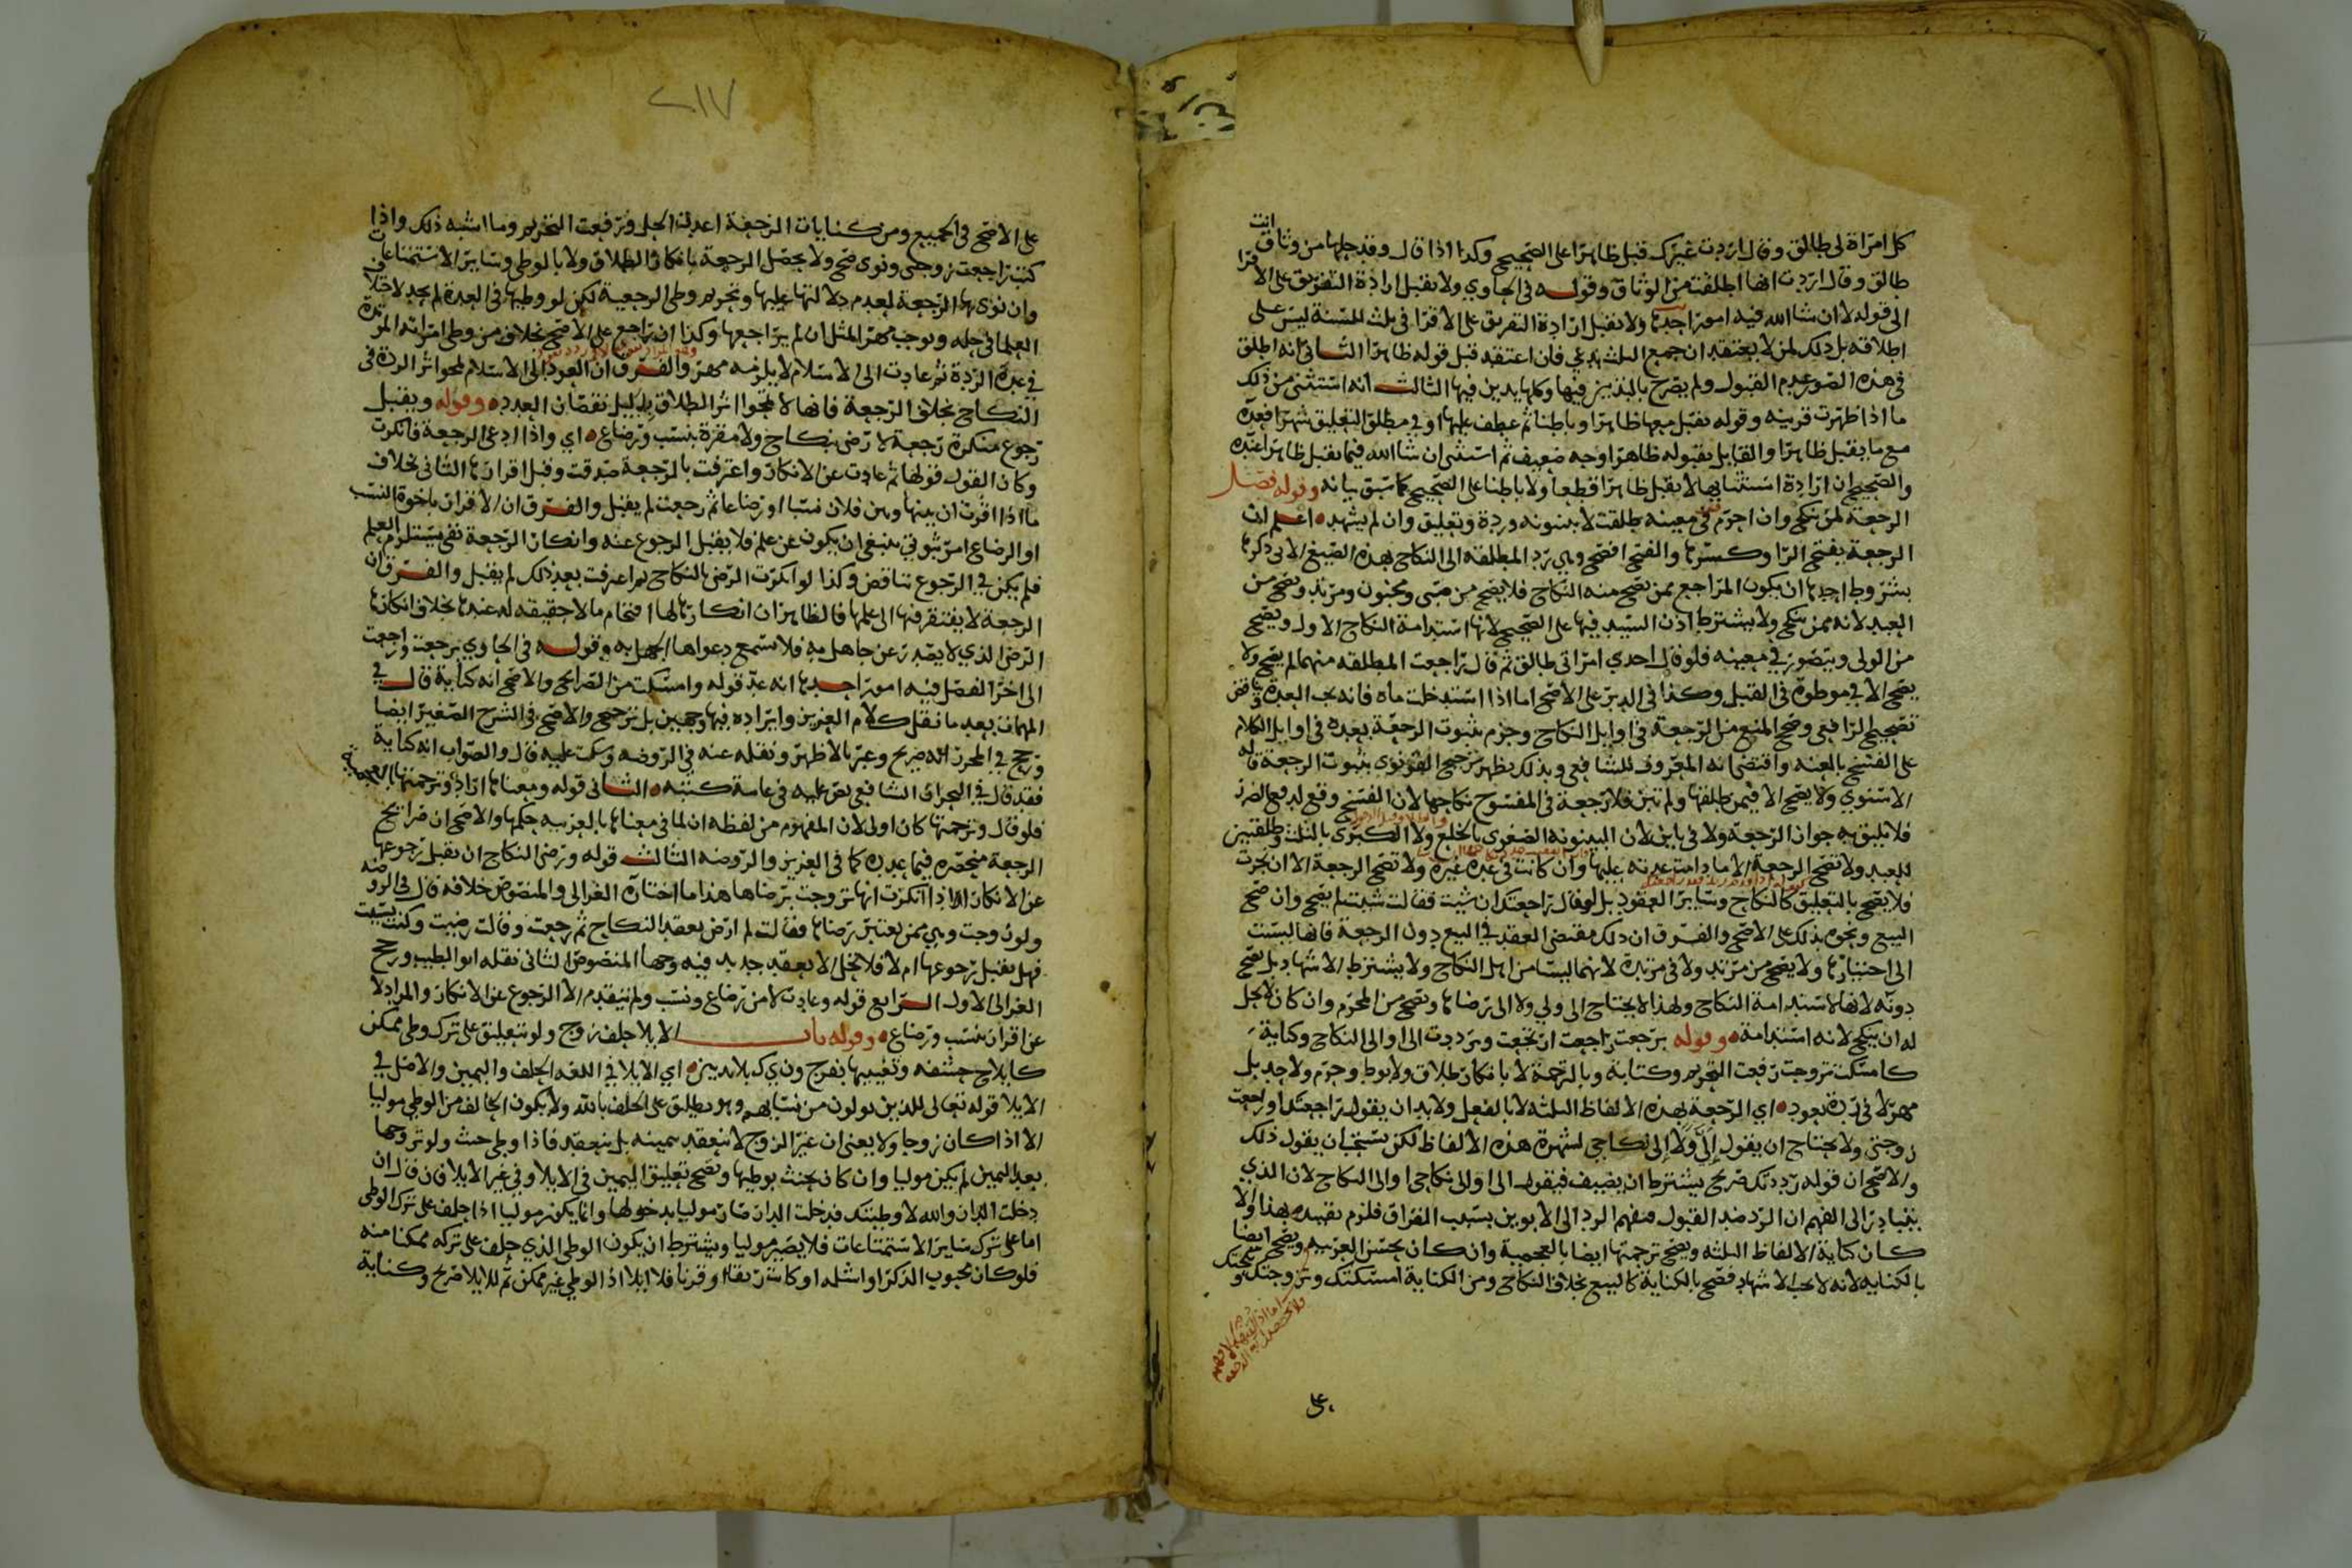 كل امراة لي طالق وقال اردت غيرك قبل ظاهرا على الصحيح وكذا اذا قال وقد حلها من وثاق انت
طالق وقال اردت انها اطلقت من الوثاق وقوله في الحاوي ولا تقبل ارادة التفريق على الاقرا
الى قوله لا ان شا الله فيه امور احدها ولا تقبل ارادة التفريق على الاقرا في ثلث للسنة ليس على
اطلاقه بل ذلك لمن لا يعتقد ان جمع الثلث بدعي فان اعتقد قبل قوله ظاهرا الثاني انه اطلق
في هذه الصور عدم القبول ولم يصرح بالتديين فيها وكلها يدين فيها الثالث انه استثنى من ذلك
ما اذا ظهرت قرينه وقوله تقبل معها ظاهرا وباطنا ثم عطف عليها او في مطلق التعليق شهرا فعده
مع ما يقبل ظاهرا والقايل بقبوله ظاهرا وجه ضعيف ثم استثنى ان شا الله فيما يقبل ظاهرا عنده
والصحيح ان ارادة استثنايها لا يقبل ظاهرا قطعا ولا باطنا على الصحيح كما سبق بيانه وقوله فصل
الرجعة لمن نكح وان احرم في معينه طلقت لا بينونه وردة وتعليق وان لم يشهد اعلم ان
الرجعة بفتح الرا وكسرها والفتح افصح وهي رد المطلقه الى النكاح بهذه الصيغ الاتي ذكرها
بشروط احدها ان يكون المراجع ممن يصح منه النكاح فلا يصح من صبي ومجنون ومرتد وتصح من
العبد لانه ممن ينكح ولا يشترط اذن السيد فيها على الصحيح لانها استدامة النكاح الاول ويصح
من الولي ويتصور في معينه فلو قال احدي امراتي طالق ثم قال راجعت المطلقه منهما لم يصح ولا
يصح الا في موطوة في القبل وكذا في الدبر على الاصح اما اذا استدخلت ماه فانه يجب العدة وتناقض
تصحيح الرافعي وصح المنع من الرجعة في اوايل النكاح وجزم بثبوت الرجعة بعده في اوايل الكلام
على الفسخ بالعنه واقتضى انه المعروف للشافعي وبذلك يظهر ترجيح القونوي بثبوت الرجعة قاله
الاسنوي ولا يصح الا فيمن طلقها ولم تبن فلا رجعة في المفسوخ نكاحها لان الفسخ وقع لدفع الضرر
فلا يليق به جواز الرجعة ولا في باين لان البينونه الصغرى بالخلع ولا الكبرى بالثلث وطلقتين
للعبد ولا تصح الرجعة الا ما دامت عدته عليها وان كانت في عدة غيره ولا تصح الرجعة الا ان نجزت
فلا يصح بالتعليق كالنكاح وساير العقود بل لو قال راجعتك ان شيت فقالت شيت لم يصح وان صح
البيع ونحوه بذلك على الاصح والفرق ان ذلك مقتضى العقد في البيع دون الرجعة فانها ليست
الى اختيارها ولا يصح من مرتد ولا في مرتدة لانهما ليسا من اهل النكاح ولا يشترط الاشهاد بل تصح
دونه لانها لاستدامة النكاح ولهذا لا يحتاج الى ولي ولا الى رضاها وتصح من المحرم وان كان لا يحل
له ان ينكح لانه استدامة وقوله برجعت راجعت ارتجعت ورددت الى او الى النكاح وكناية
كامسكت تزوجت رفعت التحريم وكتابة وبالترجمة لا بانكار طلاق ولا بوط وحرم ولا حد بل
مهر لا في ردة بعود اي الرجعة بهذه الالفاظ الثلثه لا بالفعل ولا بد ان يقول راجعتك او راجعت
زوجتي ولا يحتاج ان يقول إلَيَّ ولا إلى نكاحي لشهرة هذه الالفاظ لكن يستحب ان يقول ذلك
والاصح ان قوله رددتك صريح يشترط ان يضيف فيقول الي او الى نكاحي او الى النكاح لان الذي
يتبادر الى الفهم ان الرد ضد القبول منفهم الرد الى الابوين بسبب الفراق فلزم تقييده بهذا ولا
كان كناية الالفاظ الثلثه ويصح ترجمتها ايضا بالعجمية وان كان يحسن العربيه ويصح ايضا
بالكنايه لانه لا يجب الاشهاد فصح بالكناية كالبيع بخلاف النكاح ومن الكناية امسكتك وتزوجتك ونكحتك
على
٢١٧
على الاصح في الجميع ومن كنايات الرجعة اعدت الحل ورفعت التحريم وما اشبه ذلك واذا
كتب راجعت زوجتي ونوى صح ولا يحصل الرجعة بانكار الطلاق ولا بالوطي وساير الاستمتاعات
وان نوى بها الرجعة لعدم دلالتها عليها وتحريم وطي الرجعية لكن لو وطيها في العدة لم يحد لاختلاف
العلما في حله ويوجب مهر المثل ان لم يراجعها وكذا ان راجع على الاصح بخلاف من وطي امراته المرتدة
في عدة الردة ثم عادت الى الاسلام لا يلزمه مهر والفرق ان العود الى الاسلام لمحو اثر الردة في
النكاح بخلاف الرجعة فانها لا تمحو اثر الطلاق بدليل نقصان العدد وقوله ويقبل
رجوع منكرة رجعة لا رضى بنكاح ولا مقرة بنسب ورضاع اي واذا ادعى الرجعة فانكرت
وكان القول قولها ثم عادت عن الانكار واعترفت بالرجعة صدقت وقبل اقرارها الثاني بخلاف
ما اذا اقرت ان بينها وبين فلان نسبا او رضاعا ثم رجعت لم يقبل والفرق ان الاقرار باخوة النسب
او الرضاع امر ثبوتي ينبغي ان يكون عن علم فلا يقبل الرجوع عنه وانكار الرجعة نفي يستلزم العلم
فلم يكن في الرجوع تناقض وكذا لو انكرت الرضى بالنكاح ثم اعترفت بعد ذلك لم يقبل والفرق ان
الرجعة لا يفتقر فيها الى علمها فالظاهر ان انكارها لها اقتحام ما لا حقيقه له عندها بخلاف انكارها
الرضى الذي لا يصدر عن جاهل به فلا تسمع دعواها الجهل به وقوله في الحاوي برجعت وراجعت
الى اخر الفصل فيه امور احدها انه عد قوله وامسكت من الصرايح والاصح انه كناية قال في
المهمات بعد ما نقل كلام العزيز وايراده فيها وجهين بل ترجيح والاصح في الشرح الصغير ايضا
ورجح في المحرر انه صريح وعبر بالاظهر ونقله عنه في الروضه وسكت عليه قال والصواب انه كناية
فقد قال في البحر ان الشافعي نص عليه في عامة كتبه الثاني قوله ومعناها اراد وترجمتها بالعجمية
فلو قال وترجمتها كان اولى لان المفهوم من لفظه ان لما في معناها بالعربيه حكمها والاصح ان صرايح
الرجعة منحصره فيما عدده كما في العزيز والروضه الثالث قوله ورضى النكاح ان يقبل رجوعها
عن الانكار اذا انكرت انها تزوجت برضاها هذا ما اختاره الغزالي والمنصوص خلافه قال في الروضه
ولو زوجت وهي ممن يعتبر رضاها فقالت لم ارض بعقد النكاح ثم رجعت وقالت رضيت وكنت نسيت
فهل يقبل رجوعها ام لا فلا تحل الا بعقد جديد فيه وجها المنصوص الثاني نقله ابو الطيب ورجح
الغزالي الاول الرابع قوله وعادت لا من رضاع ونسب ولم يتقدم الا الرجوع عن الانكار والمراد لا
عن اقرار بنسب ورضاع وقوله باب الايلا حلف زوج ولو بتعليق على ترك وطي ممكن
كايلاج حشفه وتغييبها بفرج وني ك بلا تديين اي الايلا في اللغه الحلف واليمين والاصل في
الايلا قوله تعالى للذين يولون من نسايهم وهو يطلق على الحلف بالله ولا يكون الحالف من الوطي موليا
الا اذا كان زوجا ولا يعنى ان غير الزوج لا ينعقد يمينه بل ينعقد فاذا وطي حنث ولو تزوجها
بعد اليمين لم يكن موليا وان كان يحنث بوطيها ويصح تعليق اليمين في الايلا وفي غير الايلا فان قال ان
دخلت الدار والله لا وطيتك فدخلت الدار صار موليا بدخولها وانما يكون موليا اذا حلف على ترك الوطي
اما على ترك ساير الاستمتاعات فلا يصير موليا ويشترط ان يكون الوطي الذي حلف على تركه ممكنا منه
فلو كان مجبوب الذكر او اشله او كانت رتقا او قرنا فلا ايلا اذ الوطي غير ممكن ثم للايلا صريح وكناية